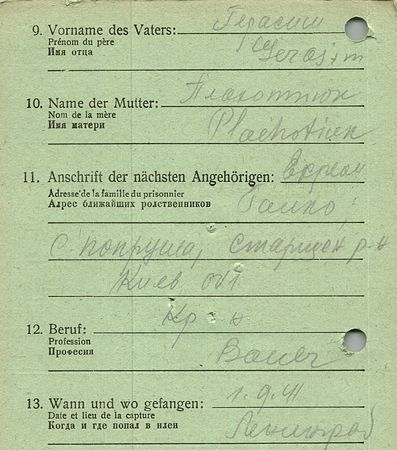 Герасим
9. Vorname des Vaters:
Prénom du père
Имя отца
Gerasim
Плахотнюк
10. Name der Mutter:
Nom de la mère
Имя матери
Plachotiuk
11. Anschrift der nächsten Angehörigen:
Adresse de la famille du prisonnier
Адрес ближайших ролственников
Ганко
с. Попружна, Старищен р-н
Киев обл
Кр-н
12. Beruf:
Profession
Професия
Bauer
13. Wann und wo gefangen: 1.9.41
Date et lieu de la capture
Когда и где попал в плен
Ленинград